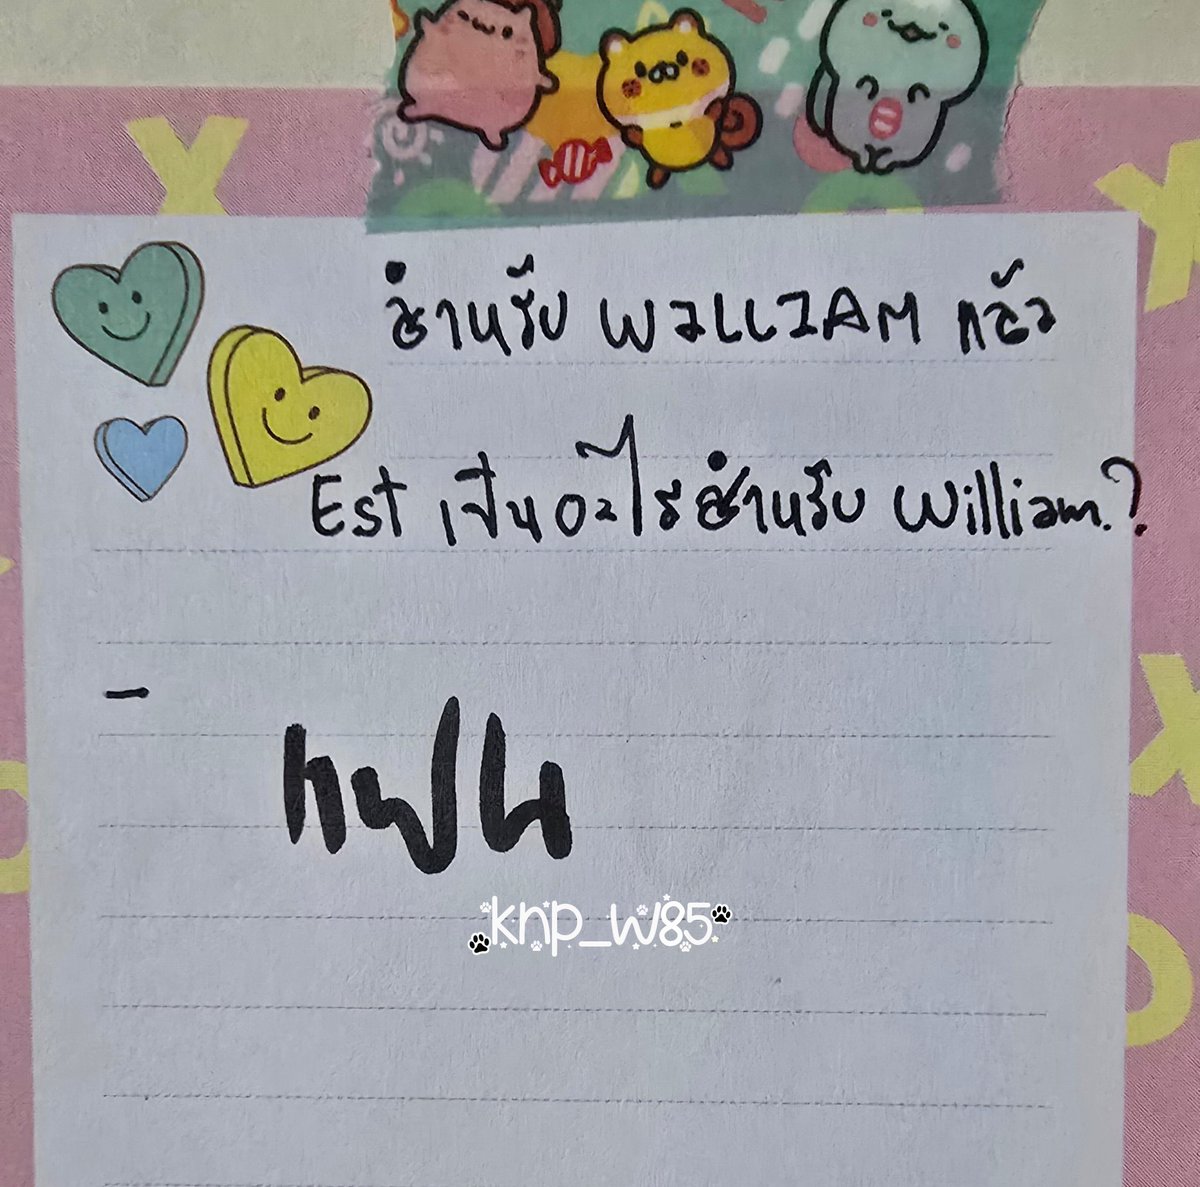 สำหรับ WILLIAM แล้ว
Est เป็นอะไรสำหรับ William?
- แฟน
knp_w85